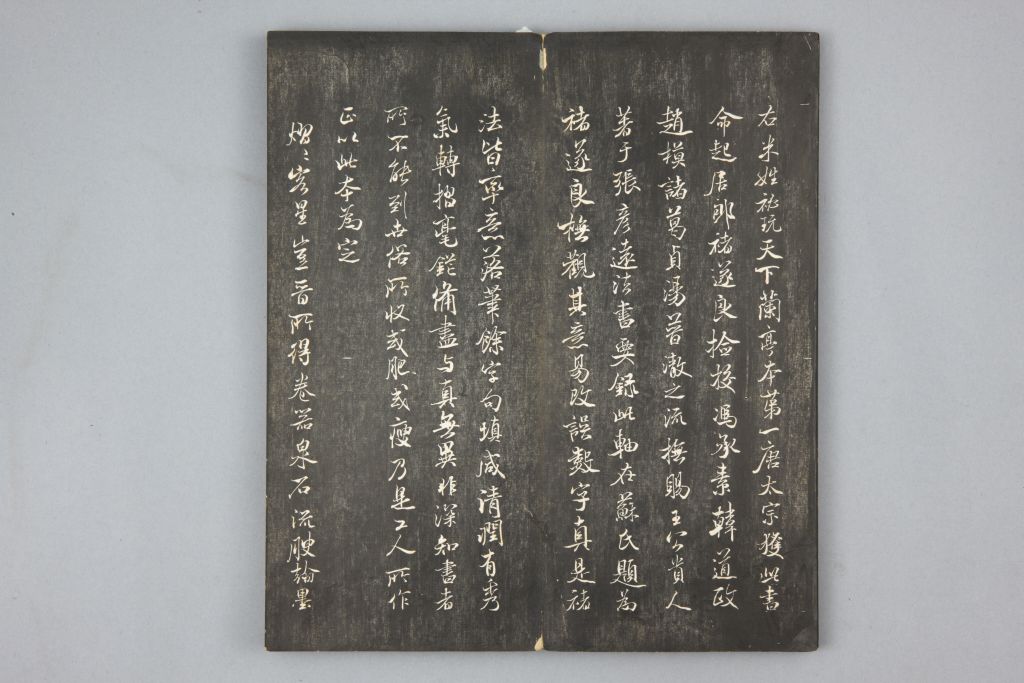 右米姓祕玩天下蘭亭本第一唐太宗獲此書
命起居郎褚遂良撿挍馮承素韓道政
趙模諸葛貞湯普澈之流橅賜王公貴人
著于張彥遠法書要錄此軸在蘇氏題為
褚遂良橅觀其意易改誤數字真是褚
法皆率意落筆餘字句填咸清潤有秀
氣轉摺毫鋩備盡与真無異非深知書者
所不能到世俗所收或肥或瘦乃是工人所作
正以此本為定
熠〻客星豈晉所得卷器泉石流腴翰墨